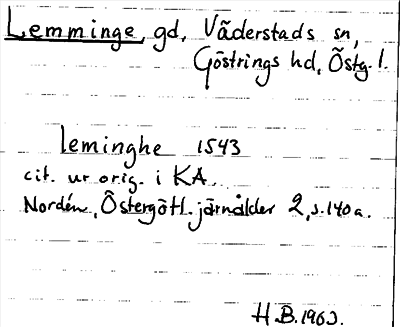 Lemminge gd, Väderstads sn,
Göstrings hd, Östg. l.
Leminghe 1543
cit. ur orig. i KA.
Nordén, Östergötl. järnålder 2, s. 140 a.
H.B. 1963.